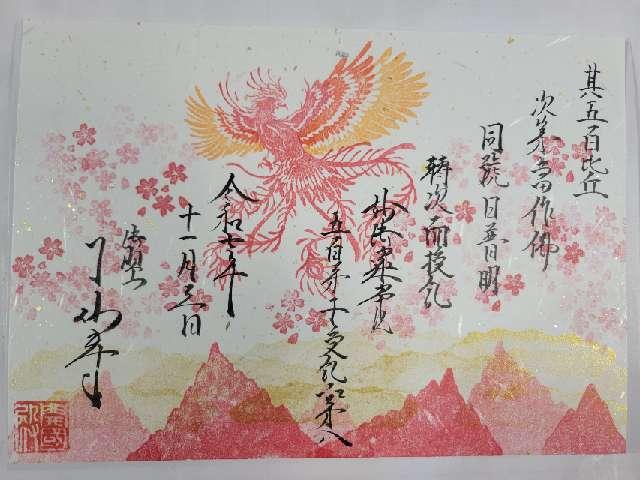 其五百比丘
次第當作佛
同號曰普明
轉次而授記
妙法蓮華経
五百弟子受記品第八
令和七年
十一月